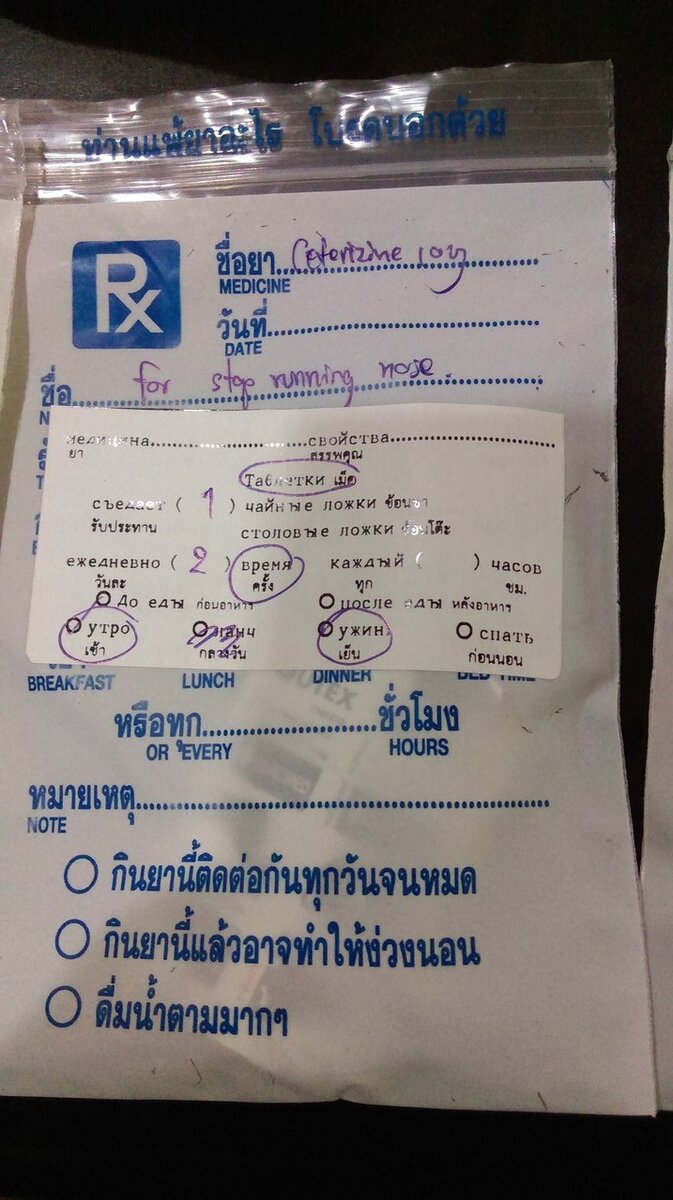 ท่านแพ้ยาอะไร โปรดบอกด้วย
Rx
ชื่อยา....................
MEDICINE
วันที่....................
DATE
ชื่อ.... for stop running nose
медицина....................свойства....................
ยา สรรพคุณ
Таблетки เม็ด
съедает ( 1 ) чайные ложки ช้อนชา
รับประทาน столовые ложки ช้อนโต๊ะ
ежедневно ( 2 ) время каждый ( ) часов
วันละ ครั้ง ทุก ชม.
До еды ก่อนอาหาร после еды หลังอาหาร
утро ланч ужин спать
เช้า กลางวัน เย็น ก่อนนอน
BREAKFAST LUNCH DINNER BED TIME
หรือทุก....................ชั่วโมง
OR EVERY HOURS
หมายเหตุ....................
NOTE
กินยานี้ติดต่อกันทุกวันจนหมด
กินยานี้แล้วอาจทำให้ง่วงนอน
ดื่มน้ำตามมากๆ